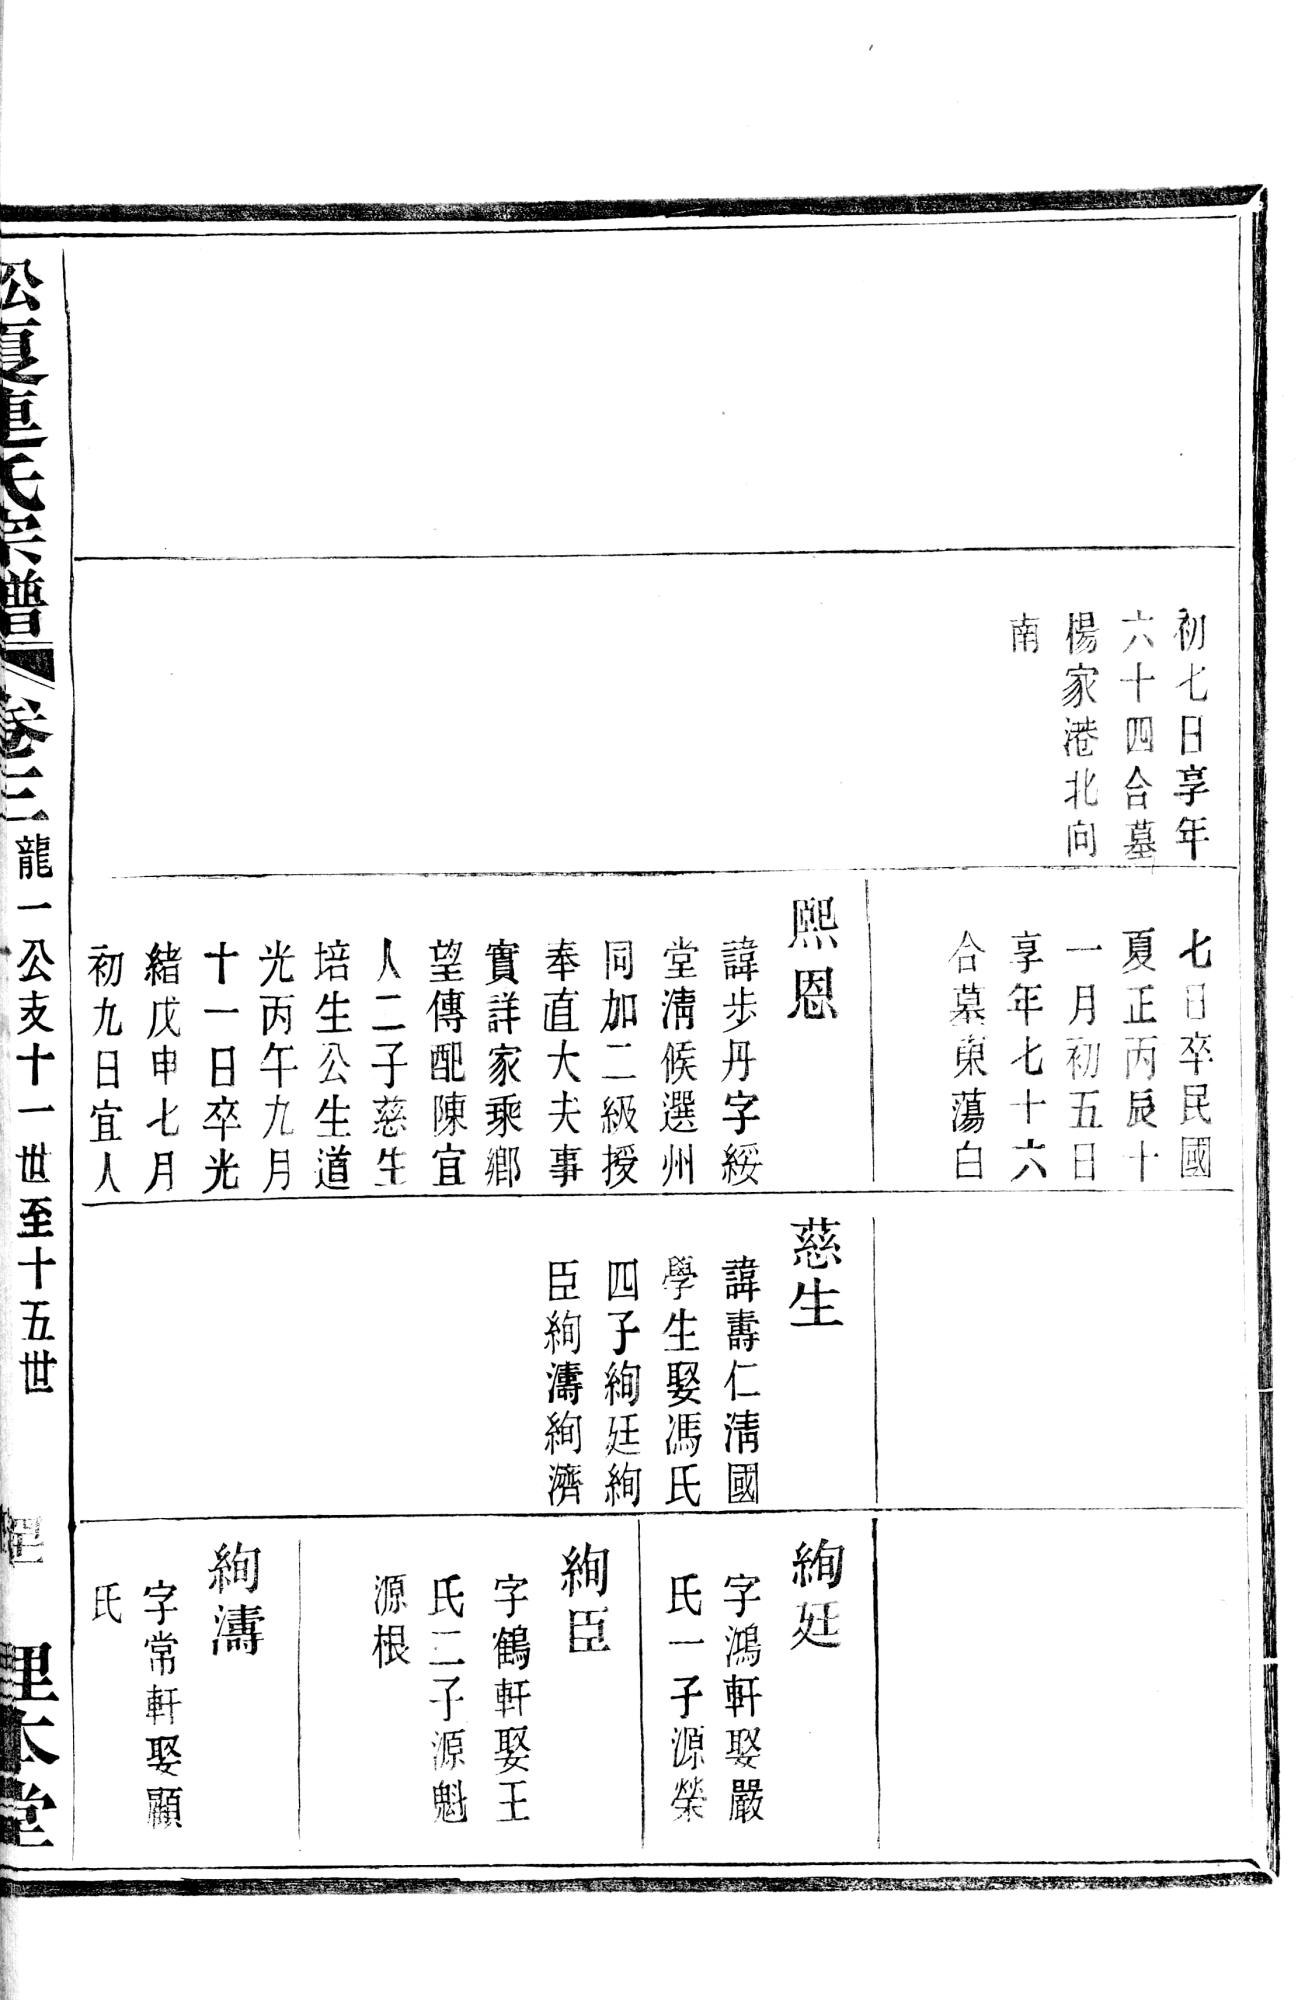 初七日享年
六十四合墓
楊家港北向
南
七日卒民國
夏正丙辰十
一月初五日
享年七十六
合墓東蕩白
熙恩
諱步丹字綏
堂清候選州
同加二級授
奉直大夫事
實詳家乘鄉
望傳配陳宜
人二子慈生
培生公生道
光丙午九月
十一日卒光
緒戊申七月
初九日宜人
慈生
諱壽仁清國
學生娶馮氏
四子絢廷絢
臣絢濤絢濟
絢廷
字鴻軒娶嚴
氏一子源榮
絢臣
字鶴軒娶王
氏二子源魁
源根
絢濤
字常軒娶顧
氏
松夏連氏宗譜 卷三 龍一公支十一世至十五世 理本堂